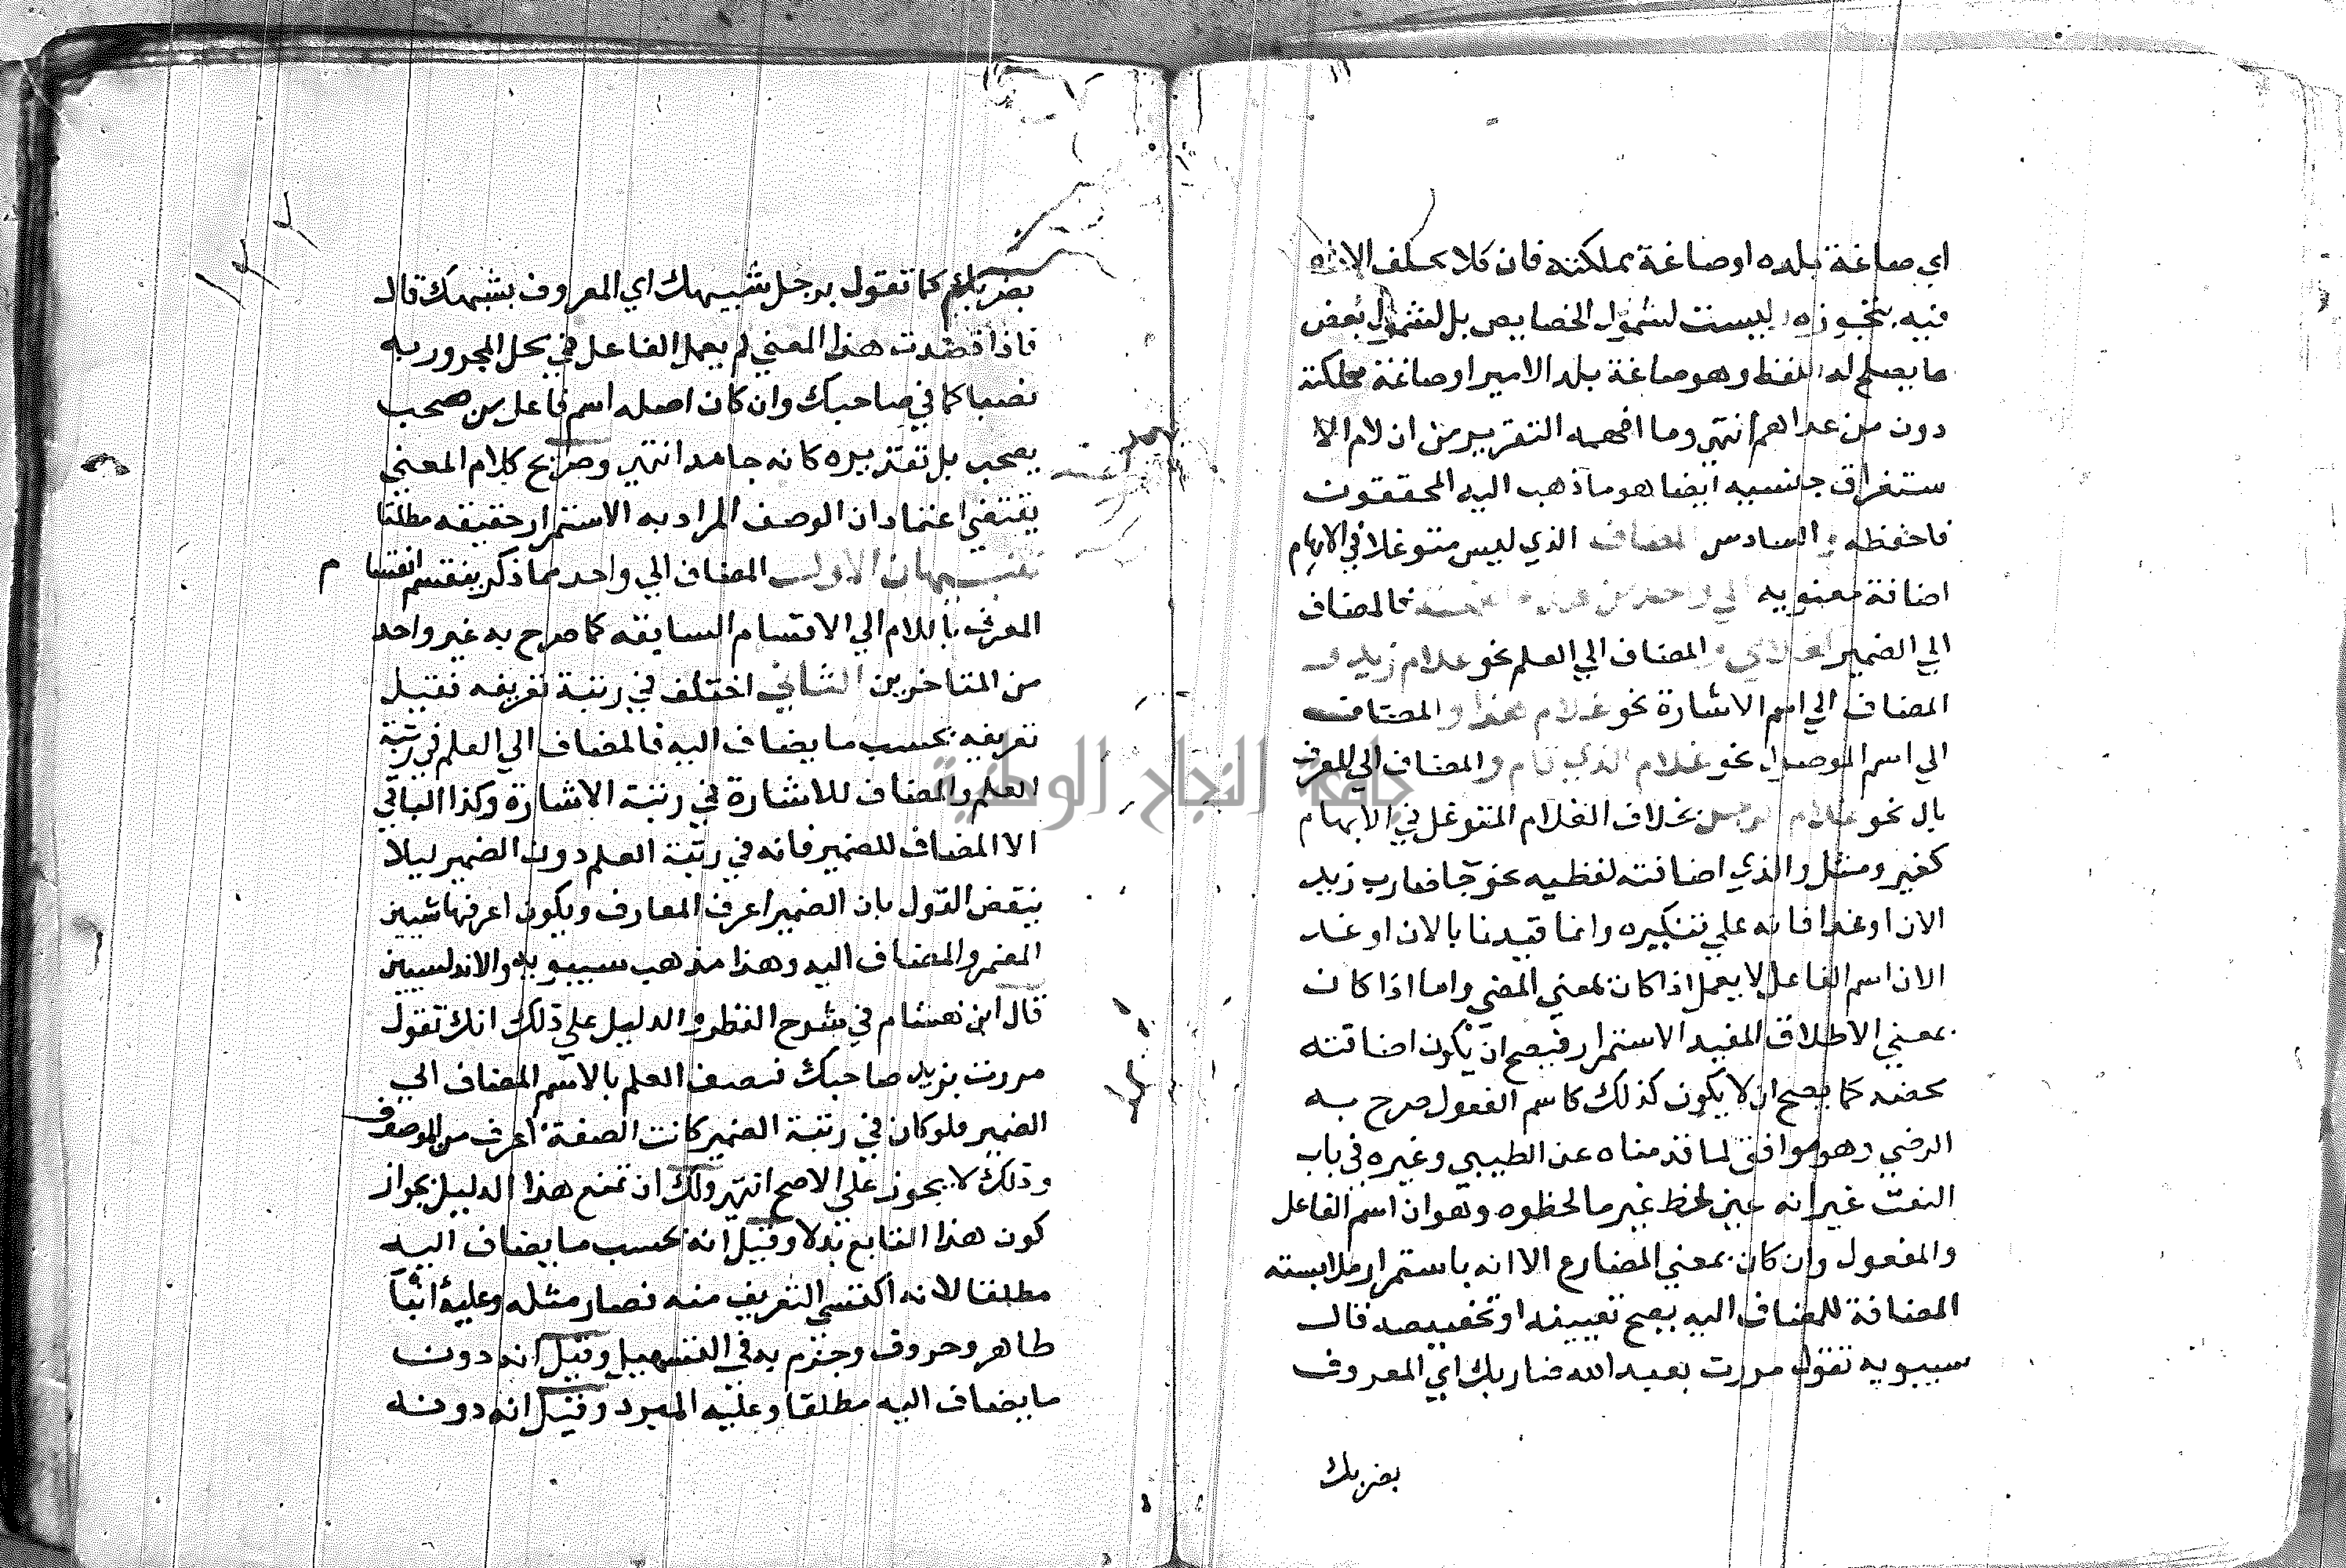 اي صاغة بلده او صاغة مملكته فان كلا يحلف الا انه
فيه بتجوزه ليست لشمول الخصايص بل لشمول بعض
ما يصلح له اللفظ وهو صاغة بلد الامير او صاغة مملكته
دون من عداهم انتهى وما افهمه التقرير من ان لام الا
ستغراق جنسيه ايضا هو ما ذهب اليه المحققون
فاحفظه و السادس المضاف الذي ليس متوغلا في الابهام
اضافة معنويه الي واحد من هذه الخمسة فالمضاف
الي الضمير كغلامي و المضاف الي العلم نحو غلام زيد و
المضاف الي اسم الاشارة نحو غلام هذا و المضاف
الي اسم الموصول نحو غلام الذي قام و المضاف الي المعرف
بال نحو غلام الرجل بخلاف الغلام المتوغل في الابهام
كغير ومثل والذي اضافته لفظيه نحو جا ضارب زيد
الان او غدا فانه علي تنكيره وانما قيدنا بالان او غد
الان اسم الفاعل لا يعمل اذا كان بمعني المضي واما اذا كان
بمعني الاطلاق المفيد الاستمرار فيصح ان يكون اضافته
محضه كما يصح ان لا يكون كذلك كاسم المفعول صرح به
الرضي وهو موافق لما قدمناه عن الطيبي وغيره في باب
النعت غير انه عين لحظ غير ما لحظوه وهو ان اسم الفاعل
والمفعول وان كان بمعني المضارع الا انه باستمرار ملابسته
المضافة للمضاف اليه يصح تعييفه او تخصيصه قال
سيبويه تقول مررت بعبد الله ضاربك اي المعروف
بضربك
بضربك كما تقول برجل شبيهك اي المعروف بشبهك قال
فاذا قصدت هذا المعني لم يعمل الفاعل في محل المجرور به
نصبا كما في صاحبك وان كان اصله اسم فاعل من صحب
يصحب بل تقديره كانه جامد انتهى وصريح كلام المعني
يقتضي اعتماد ان الوصف المراد به الاستمرار حقيقه مطلقا
تنبيهان الاول المضاف الي واحد مما ذكر ينقسم انقسام
المعرف باللام الي الاقسام السابقه كما صرح به غير واحد
من المتاخرين الثاني اختلف في رتبة تعريفه فقيل
تعريفه بحسب ما يضاف اليه فالمضاف الي العلم في رتبة
العلم والمضاف للاشارة في رتبة الاشارة وكذا الباقي
الا المضاف للضمير فانه في رتبة العلم دون الضمير ليلا
ينقض القول بان الضمير اعرف المعارف ويكون اعرفها شيين
المضمر والمضاف اليه وهذا مذهب سيبويه والاندلسيين
قال ابن هشام في شرح القطر والدليل علي ذلك انك تقول
مررت بزيد صاحبك فتصف العلم بالاسم المضاف الي
الضمير فلو كان في رتبة الضمير كانت الصفة اعرف من الموصوف
وذلك لا يجوز علي الاصح انتهى ولك ان تمنع هذا الدليل بجواز
كون هذا التابع بدلا وقيل انه بحسب ما يضاف اليه
مطلقا لانه اكتسي التعريف منه فصار مثله وعليه ابنا
طاهر وحروف وجزم به في التسهيل وقيل انه دون
ما يضاف اليه مطلقا وعليه المبرد وقيل انه دونه
جامعة النجاح الوطنية